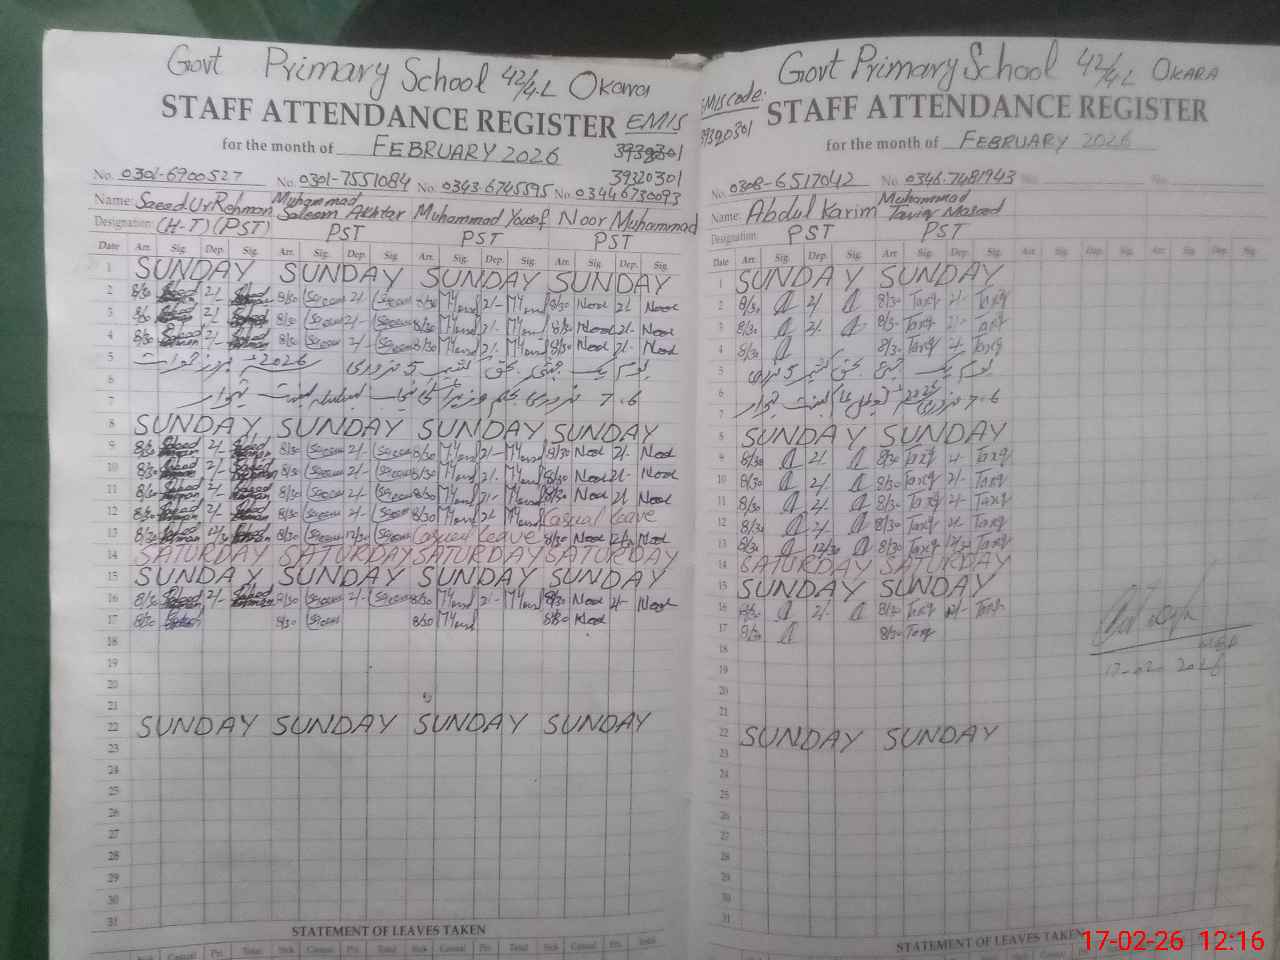 Govt Primary School 42/4.L Okara
STAFF ATTENDANCE REGISTER EMIS
for the month of FEBRUARY 2026
39320301
No. 0301-6900527 No. 0301-7551084 No. 0343.6745595 No. 0344 6730093
Name: Saeed Ur Rehman Muhammad Saleem Akhtar Muhammad Yousaf Noor Muhammad
Designation: (H-T) (PST) PST PST PST
Date Arr. Sig. Dep. Sig. Arr. Sig. Dep. Sig. Arr. Sig. Dep. Sig. Arr. Sig. Dep. Sig.
1 SUNDAY SUNDAY SUNDAY SUNDAY
2 8/30 2/- 8/30 Saleem 2/- Saleem 8/30 2/- 8/30 Noor 2/- Noor
3 8/30 2/- 8/30 Saleem 2/- Saleem 8/30 2/- 8/30 Noor 2/- Noor
4 8/30 2/- 8/30 Saleem 2/- Saleem 8/30 2/- 8/30 Noor 2/- Noor
5 یوم یکجہتی کشمیر 5 فروری 2026
6
7 6.7 فروری
8 SUNDAY SUNDAY SUNDAY SUNDAY
9 8/30 2/- 8/30 Saleem 2/- Saleem 8/30 2/- 8/30 Noor 2/- Noor
10 8/30 2/- 8/30 Saleem 2/- Saleem 8/30 2/- 8/30 Noor 2/- Noor
11 8/30 2/- 8/30 Saleem 2/- Saleem 8/30 2/- 8/30 Noor 2/- Noor
12 8/30 2/- 8/30 Saleem 2/- Saleem 8/30 2/- Casual leave
13 8/30 12/30 8/30 Saleem 12/30 Saleem Casual leave 8/30 Noor 12/30 Noor
14 SATURDAY SATURDAY SATURDAY SATURDAY
15 SUNDAY SUNDAY SUNDAY SUNDAY
16 8/30 2/- 8/30 Saleem 2/- Saleem 8/30 2/- 8/30 Noor 2/- Noor
17 8/30 8/30 Saleem 8/30 8/30 Noor
18
19
20
21
22 SUNDAY SUNDAY SUNDAY SUNDAY
23
24
25
26
27
28
29
30
31
STATEMENT OF LEAVES TAKEN
Sick Casual Pri. Total Sick Casual Pri. Total Sick Casual Pri. Total Sick Casual Pri. Total
Govt Primary School 42/4.L OKARA
EMIS code: 39320301
STAFF ATTENDANCE REGISTER
for the month of FEBRUARY 2026
No. 0308-6517042 No. 0346.7481943 No. No.
Name: Abdul Karim Muhammad Tariq Masood
Designation: PST PST
Date Arr. Sig. Dep. Sig. Arr. Sig. Dep. Sig. Arr. Sig. Dep. Sig. Arr. Sig. Dep. Sig.
1 SUNDAY SUNDAY
2 8/30 2/- 8/30 Tariq 2/- Tariq
3 8/30 2/- 8/30 Tariq 2/- Tariq
4 8/30 8/30 Tariq 2/- Tariq
5 یوم یکجہتی کشمیر 5 فروری
6
7 6.7 فروری
8 SUNDAY SUNDAY
9 8/30 2/- 8/30 Tariq 2/- Tariq
10 8/30 2/- 8/30 Tariq 2/- Tariq
11 8/30 2/- 8/30 Tariq 2/- Tariq
12 8/30 2/- 8/30 Tariq 2/- Tariq
13 8/30 12/30 8/30 Tariq 12/30 Tariq
14 SATURDAY SATURDAY
15 SUNDAY SUNDAY
16 8/30 2/- 8/30 Tariq 2/- Tariq
17 8/30 8/30 Tariq
17-02-2026
18
19
20
21
22 SUNDAY SUNDAY
23
24
25
26
27
28
29
30
31
STATEMENT OF LEAVES TAKEN
17-02-26 12:16